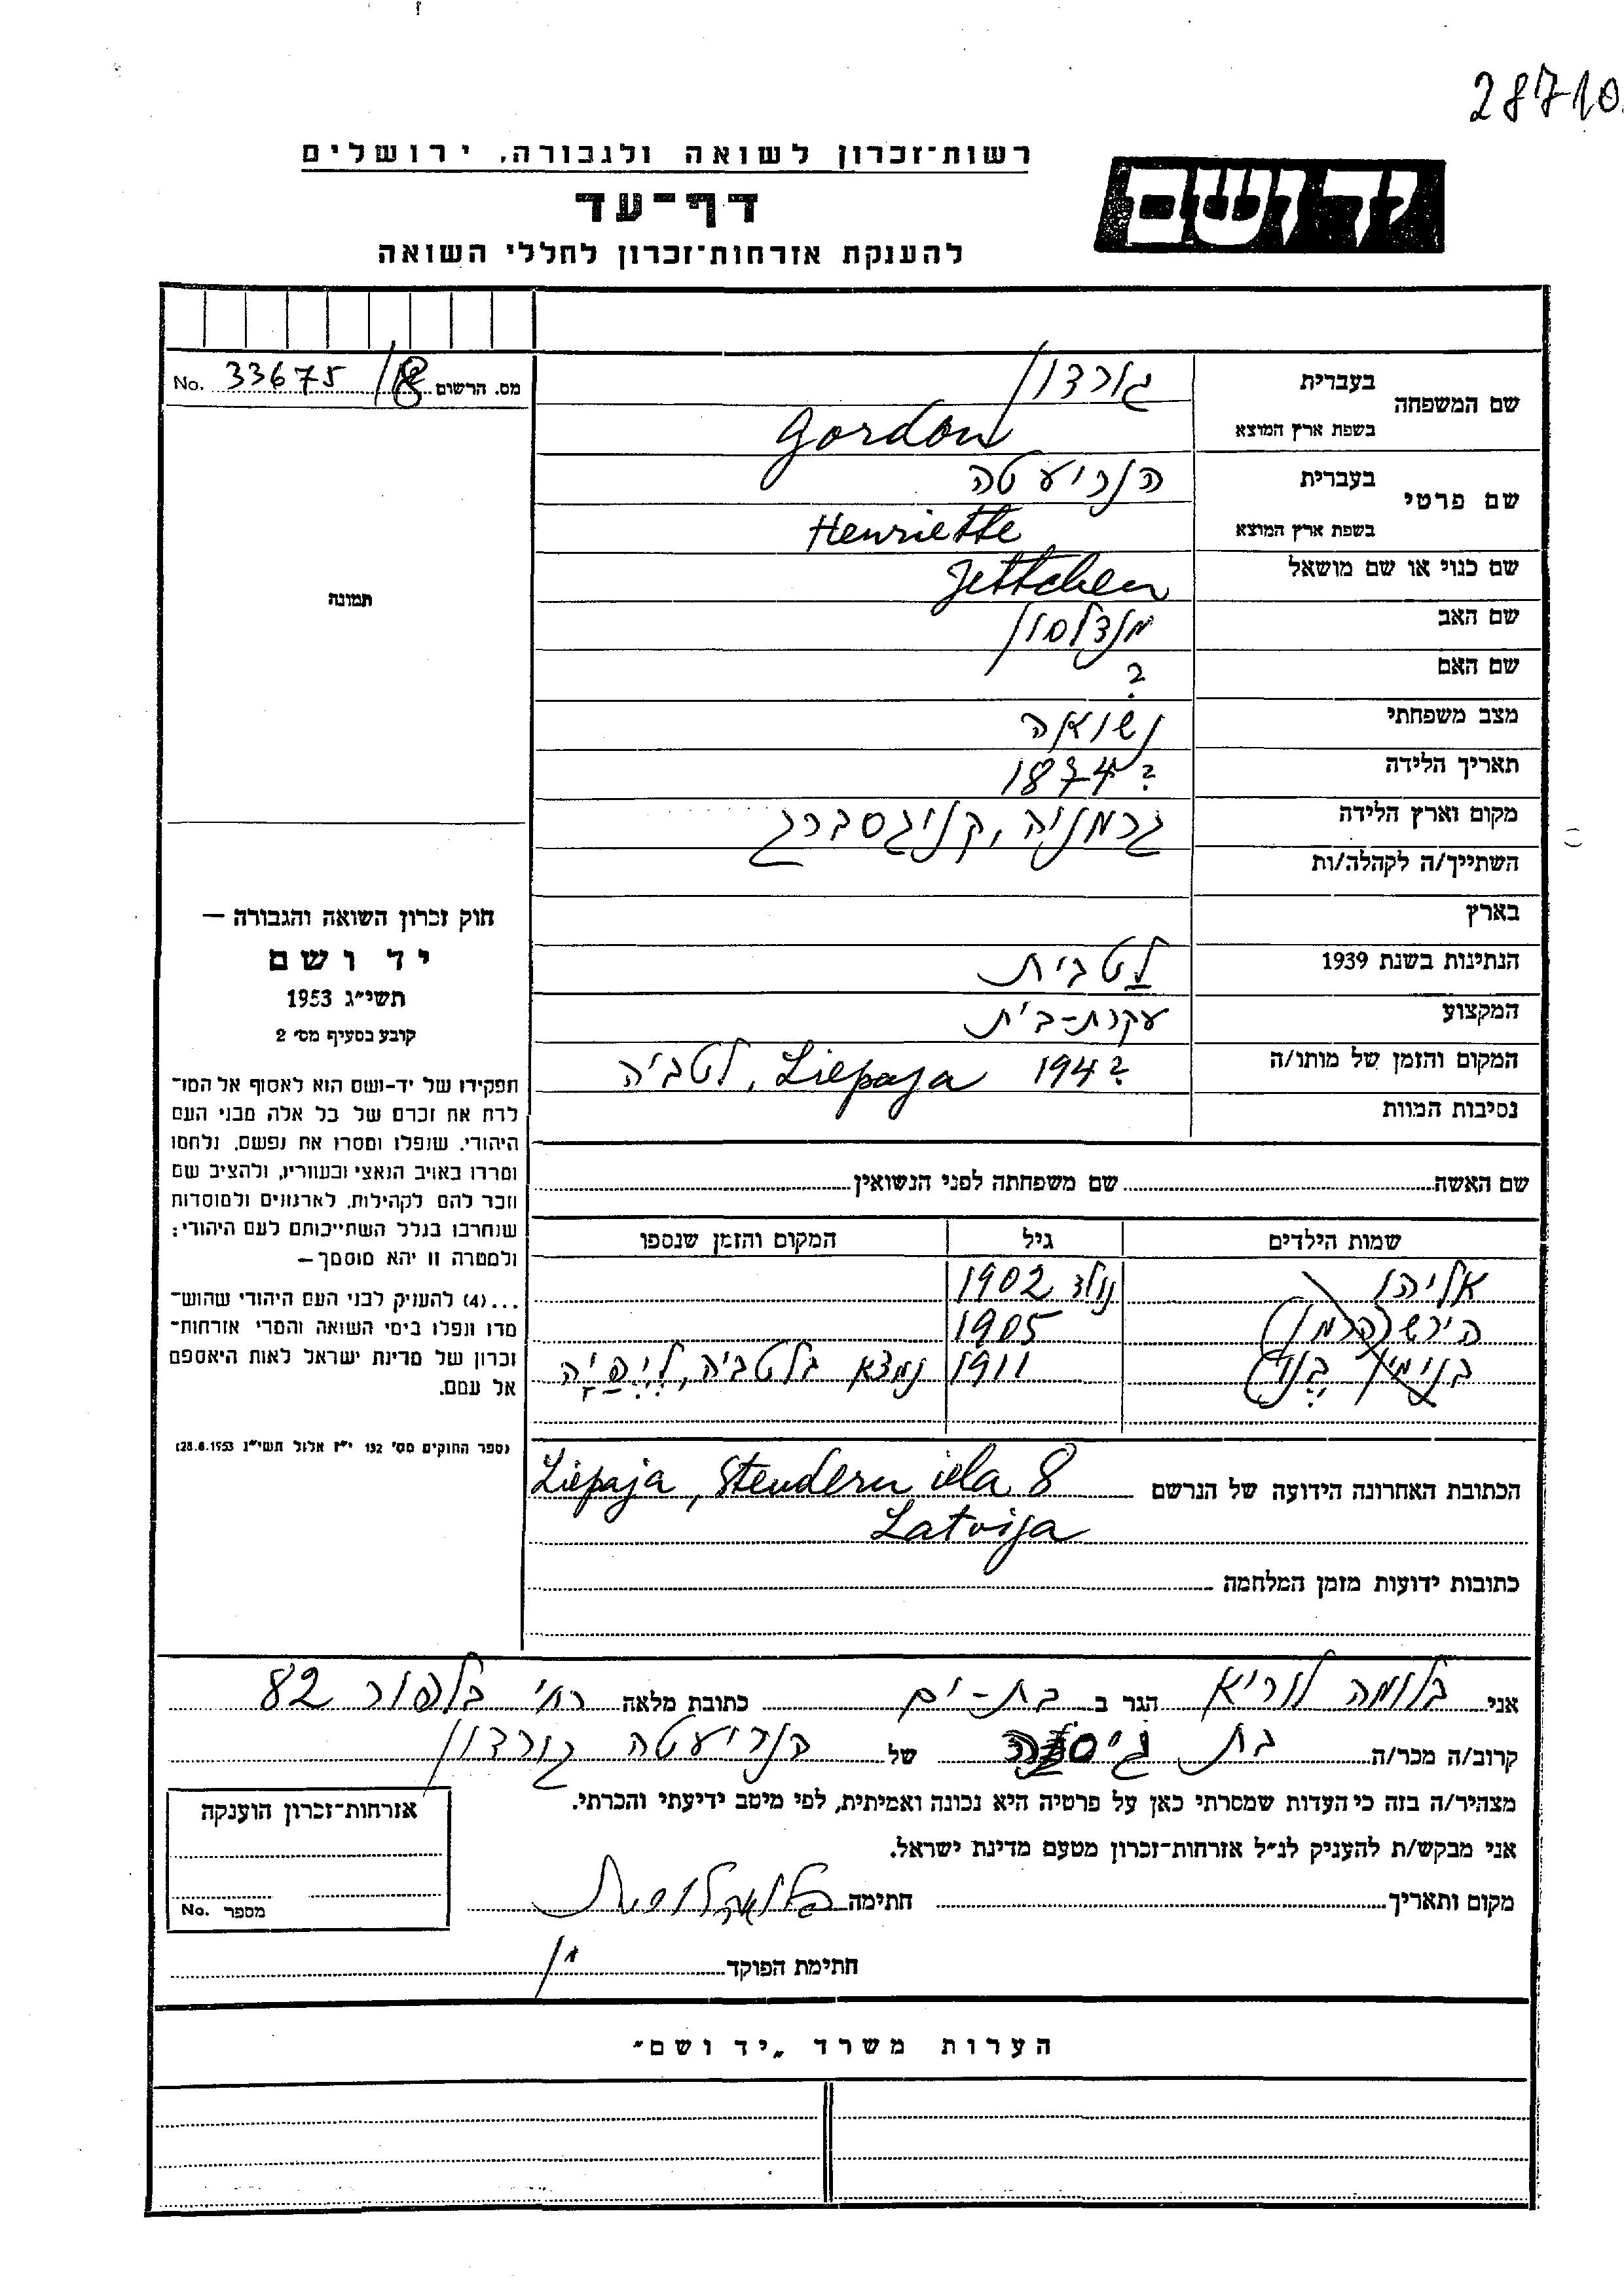 28710
יד ושם
רשות-זכרון לשואה ולגבורה, ירושלים
דף-עד
להענקת אזרחות-זכרון לחללי השואה
שם המשפחה בעברית גורדון
בשפת ארץ המוצא Gordon
שם פרטי בעברית הנריעטה
בשפת ארץ המוצא Henriette
שם כנוי או שם מושאל Jettchen
שם האב מנדלסון
שם האם ?
מצב משפחתי נשואה
תאריך הלידה ? 1874
מקום וארץ הלידה גרמניה, קניגסברג
השתייך/ה לקהלה/ות
בארץ
הנתינות בשנת 1939 לטבית
המקצוע עקרת-בית
המקום והזמן של מותו/ה 194? Liepaja, לטביה
נסיבות המוות
מס. הרשום 33675/18 No.
תמונה
חוק זכרון השואה והגבורה —
יד ושם
תשי״ג 1953
קובע בסעיף מס׳ 2
תפקידו של יד-ושם הוא לאסוף אל המו-
לדת את זכרם של כל אלה מבני העם
היהודי, שנפלו ומסרו את נפשם, נלחמו
ומרדו באויב הנאצי ובעוזריו, ולהציב שם
וזכר להם לקהילות, לארגונים ולמוסדות
שנחרבו בגלל השתייכותם לעם היהודי;
ולמטרה זו יהא מוסמך —
...(4) להעניק לבני העם היהודי שהוש-
מדו ונפלו בימי השואה והמרי אזרחות-
זכרון של מדינת ישראל לאות היאספם
אל עמם.
(ספר החוקים מס׳ 132 י״ז אלול תשי״ג 28.8.1953)
שם האשה שם משפחתה לפני הנשואין
שמות הילדים גיל המקום והזמן שנספו
אליהו נולד 1902
הירש (הרמן) 1905
בנימין (בני) 1911 נמצא בלטביה, לִיֶפַּיָה
הכתובת האחרונה הידועה של הנרשם Liepaja, Stenderu iela 8
Latvija
כתובות ידועות מזמן המלחמה
אני בלומה לוריא הגר ב בת-ים כתובת מלאה רח׳ בלפור 82
קרוב/ה מכר/ה בת גיסה של הנריעטה גורדון
מצהיר/ה בזה כי העדות שמסרתי כאן על פרטיה היא נכונה ואמיתית, לפי מיטב ידיעתי והכרתי.
אני מבקש/ת להעניק לנ״ל אזרחות-זכרון מטעם מדינת ישראל.
מקום ותאריך חתימה
חתימת הפוקד
אזרחות-זכרון הוענקה
מספר No.
הערות משרד „יד ושם״